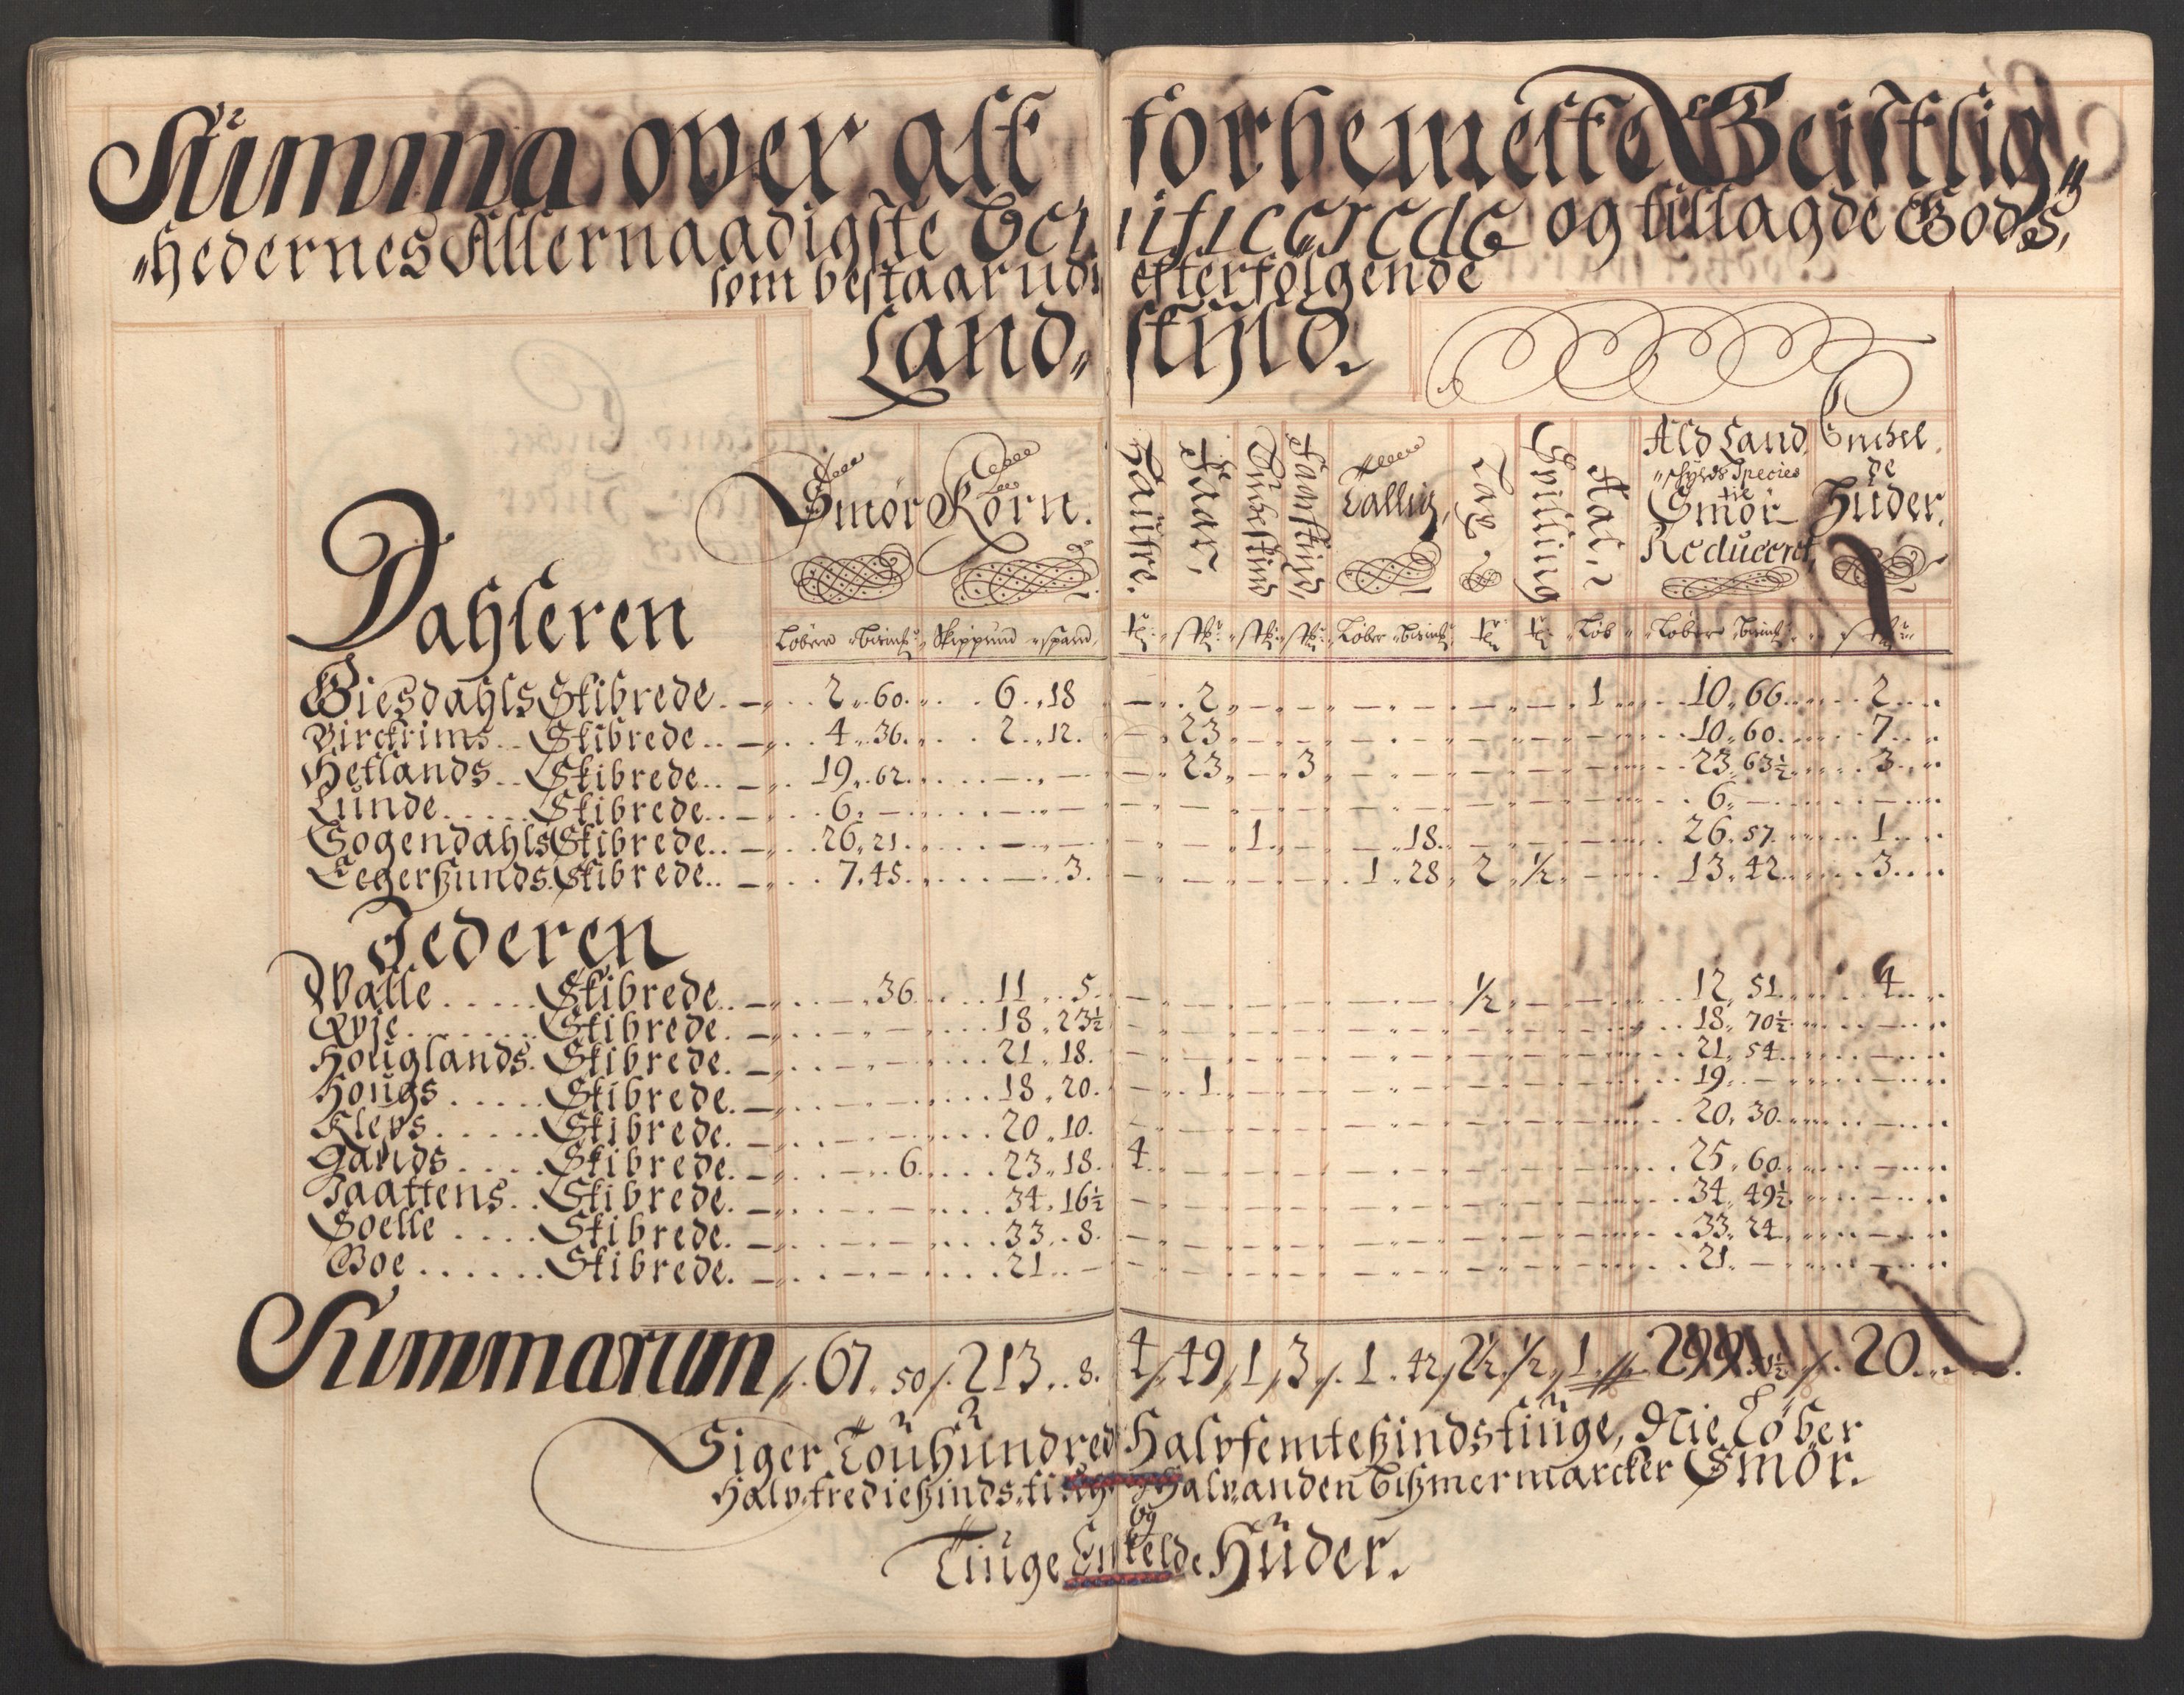 Summa over alt forbemelte Geistlig„
„hedernes Allernaadigste Beneficerede og tillagde Gods,
som bestaar udi efterfölgende
Land„ skyld.
Smör Korn. Faar, Tallig, Aal, Ald Land„ Enckel„
„skylds Species de
til
Smör Hüder.
Reduceret,
Dahleren
Löber Skippund spand Löber Löb Löber
Giesdahls Skibrede 2 60 6 18 — 2 — 1 10 66 2
Birckrims Skibrede 4 36 2 12 — 23 — 10 60 7
Hetlands Skibrede 19 62 — — — 23 — 3 — 23 63½ 3
Lunde Skibrede 6 — — — — 6 — —
Sogendahls Skibrede 26 21 — — — — 1 — 18 — 26 57 1
Eegerßunds Skibrede 7 45 — 3 — 1 28 2 ½ — 13 42 3
Jederen
Walle Skibrede — 36 11 5 — ½ — 12 51 4
Qvie Skibrede — 18 23½ — 18 70½ —
Houglands Skibrede — 21 18 — 21 54 —
Hougs Skibrede — 18 20 — 1 — 19 — —
Kleps Skibrede — 20 10 — 20 30 —
Gands Skibrede — 6 23 18 4 — 25 60 —
Taattens Skibrede — 34 16½ — 34 49½ —
Soelle Skibrede — 33 8 — 33 24 —
Boe Skibrede — 21 — — 21 — —
Summarum 67 50 213 8 4 49 1 3 1 42 2½ ½ 1 299 20
Siger Touhundred Halvfemteßindstiuge, Nie Löber
Halvtredießindstiuge Halvanden Bißmermarcker Smör.
og
Tiuge Enkelde Hüder.